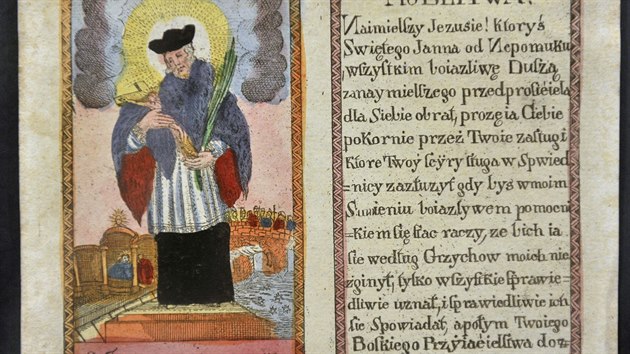 MODLITWA.
Naimielszy Jezusie! ktoryś
Swiętego Janna od Nepomuku
wszystkim boiazliwę Duszą
za naymielszego przedprośćiela
dla Siebie obrał, prozę ia Ciebie
poKornie przeż Twoie zasługi
Ktore Twoy sługa w Spwied
=nicy zazłuzył gdy byś w moim
Sumieniu boiazlywem pomocn
=Kiem się stac raczy, ze bich ia
sie według Grzychow moich nie
zginył, tylko wszyskie sprawie=
dliwie uznał, i sprawiedliwie ich
sie Spowiadał, a potym Twoiego
Boskiego Przyiaćielstwa do=